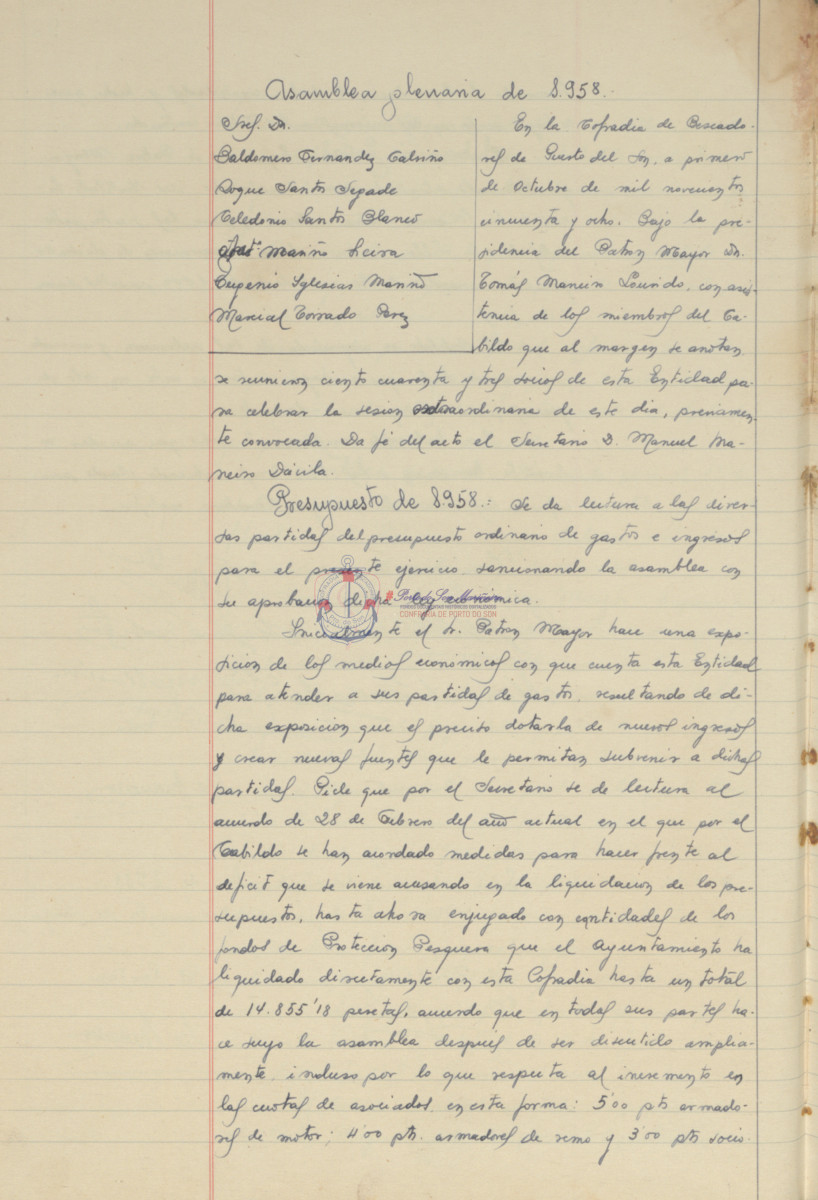 Asamblea plenaria de 1.958.-
Sres. Dn.
Baldomero Fernandez Calviño
Roque Santos Segade
Celedonio Santos Blanco
José Mariño Lieira
Eugenio Yglesias Mariño
Marcial Torrado Perez
En la Cofradia de Pescado-
res de Puerto del Son, a primero
de Octubre de mil novecientos
cincuenta y ocho. Bajo la pre-
sidencia del Patron Mayor Dn.
Tomás Lourido, con asis-
tencia de los miembros del Ca-
bildo que al margen se anotan,
se reunieron ciento cuarenta y tres socios de esta Entidad pa-
ra celebrar la sesion extraordinaria de este dia, previamen-
te convocada. Da fé del acto el Secretario D. Manuel Ma-
neiro Dávila.
Presupuesto de 1.958.: Se da lectura a las diver-
sas partidas del presupuesto ordinario de gastos e ingresos
para el presente ejercicio, sancionando la asamblea con
su aprobacion dicha ley economica.
Inicialmente el Sr. Patron Mayor hace una expo-
sicion de los medios económicos con que cuenta esta Entidad
para atender a sus partidas de gastos, resultando de di-
cha exposicion que es preciso dotarla de nuevos ingresos
y crear nuevas fuentes que le permitan subvenir a dichas
partidas. Pide que por el Secretario se de lectura al
acuerdo de 28 de Febrero del año actual en el que por el
Cabildo se han acordado medidas para hacer frente al
deficit que se viene acusando en la liquidacion de los pre-
supuestos, hasta ahora enjugado con cantidades de los
fondos de Proteccion Pesquera que el Ayuntamiento ha
liquidado directamente con esta Cofradia hasta un total
de 14.855'18 pesetas, acuerdo que en todas sus partes ha-
ce suyo la asamblea después de ser discutido amplia-
mente, incluso por lo que respecta al incremento en
las cuotas de asociados, en esta forma: 5'00 pts armado-
res de motor; 4'00 pts. armadores de remo y 3'00 pts socio-
Porto do Son
CONFRARÍA DE PORTO DO SON